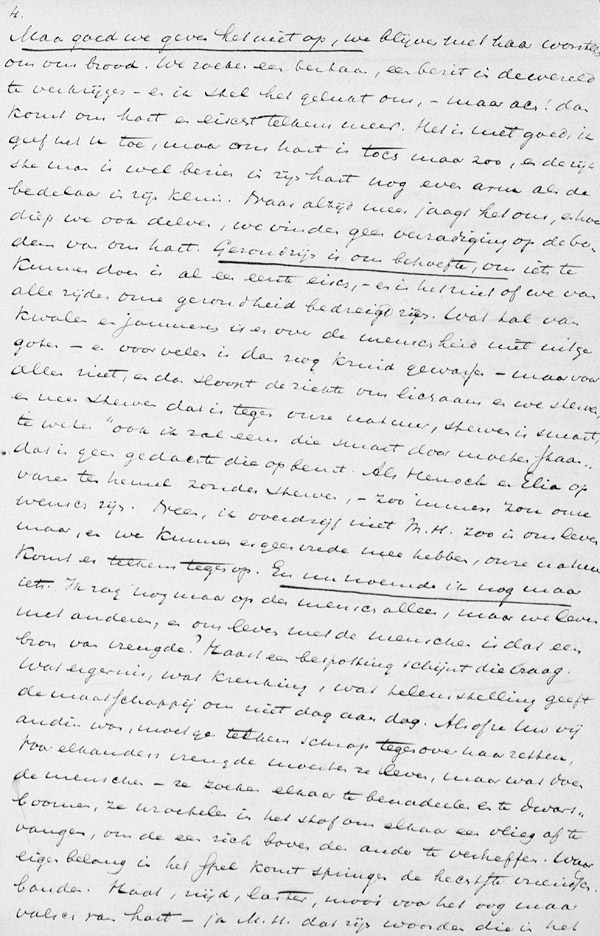 4.
Maar goed we geven het niet op, we blijven met haar worstelen
om ons brood. We zoeken een bestaan, een bezit in de wereld
te verkrijgen – en ik stel het gelukt ons, – maar ach! dan
komt ons hart en eischt telkens meer. Het is niet goed, ik
geef het U toe, maar ons hart is toch maar zoo, en de rijk
ste man is wel bezien in zijn hart nog even arm als de
bedelaar in zijn kleur. Naar altijd meer jaagt het ons, en hoe
diep we ook delven, we vinden geen verzadiging op de bo-
dem van ons hart. Gezond zijn is ons behoefte, om iets te
kunnen doen is al een eerste eisch, – en is het niet of we van
alle zijden onze gezondheid bedreigd zien. Wat tal van
kwalen en jammeren is er over de menschheid niet uitge
goten – en voor velen is dan nog kruid gewassen – maar voor
allen niet, en dan sloopt de ziekte ons lichaam en we sterven,
en neen sterven dat is tegen onze natuur, sterven is smart,
te weten "ook ik zal eens die smart door moeten staan"
dat is geen gedachte die opbeurt. Als Henoch en Elia op
varen ten hemel zonder sterven, – zoo immers zou onze
wensch zijn. Neen, ik overdrijf niet M.H. zoo is ons leven
maar, en we kunnen er geen vrede mee hebben, onze natuur
komt er telkens tegen op. En nu noemde ik nog maar
iets. Ik zag nog maar op den mensch alleen, maar we leven
met anderen, en ons leven met de menschen is dat een
bron van vreugde? Haast een bespotting schijnt die vraag.
Wat ergernis, wat krenking, wat teleurstelling geeft
de maatschappij ons niet dag aan dag. Alsof ze Uw vij
andin was, moet ge telkens schrap tegenover haar zetten,
Voor elkanders vreugde moesten ze leven, maar wat doen
de menschen – ze zoeken elkaar te benadeelen en te dwars-
boomen, ze wroetelen in het stof om elkaar een vlieg af te
vangen, om de een zich boven den ander te verheffen. Waar
eigen belang in het spel komt springen de hechtste vriendschaps
banden. Haat, nijd, laster, mooi voor het oog maar
valsch van hart – ja M.H. dat zijn woorden die in het